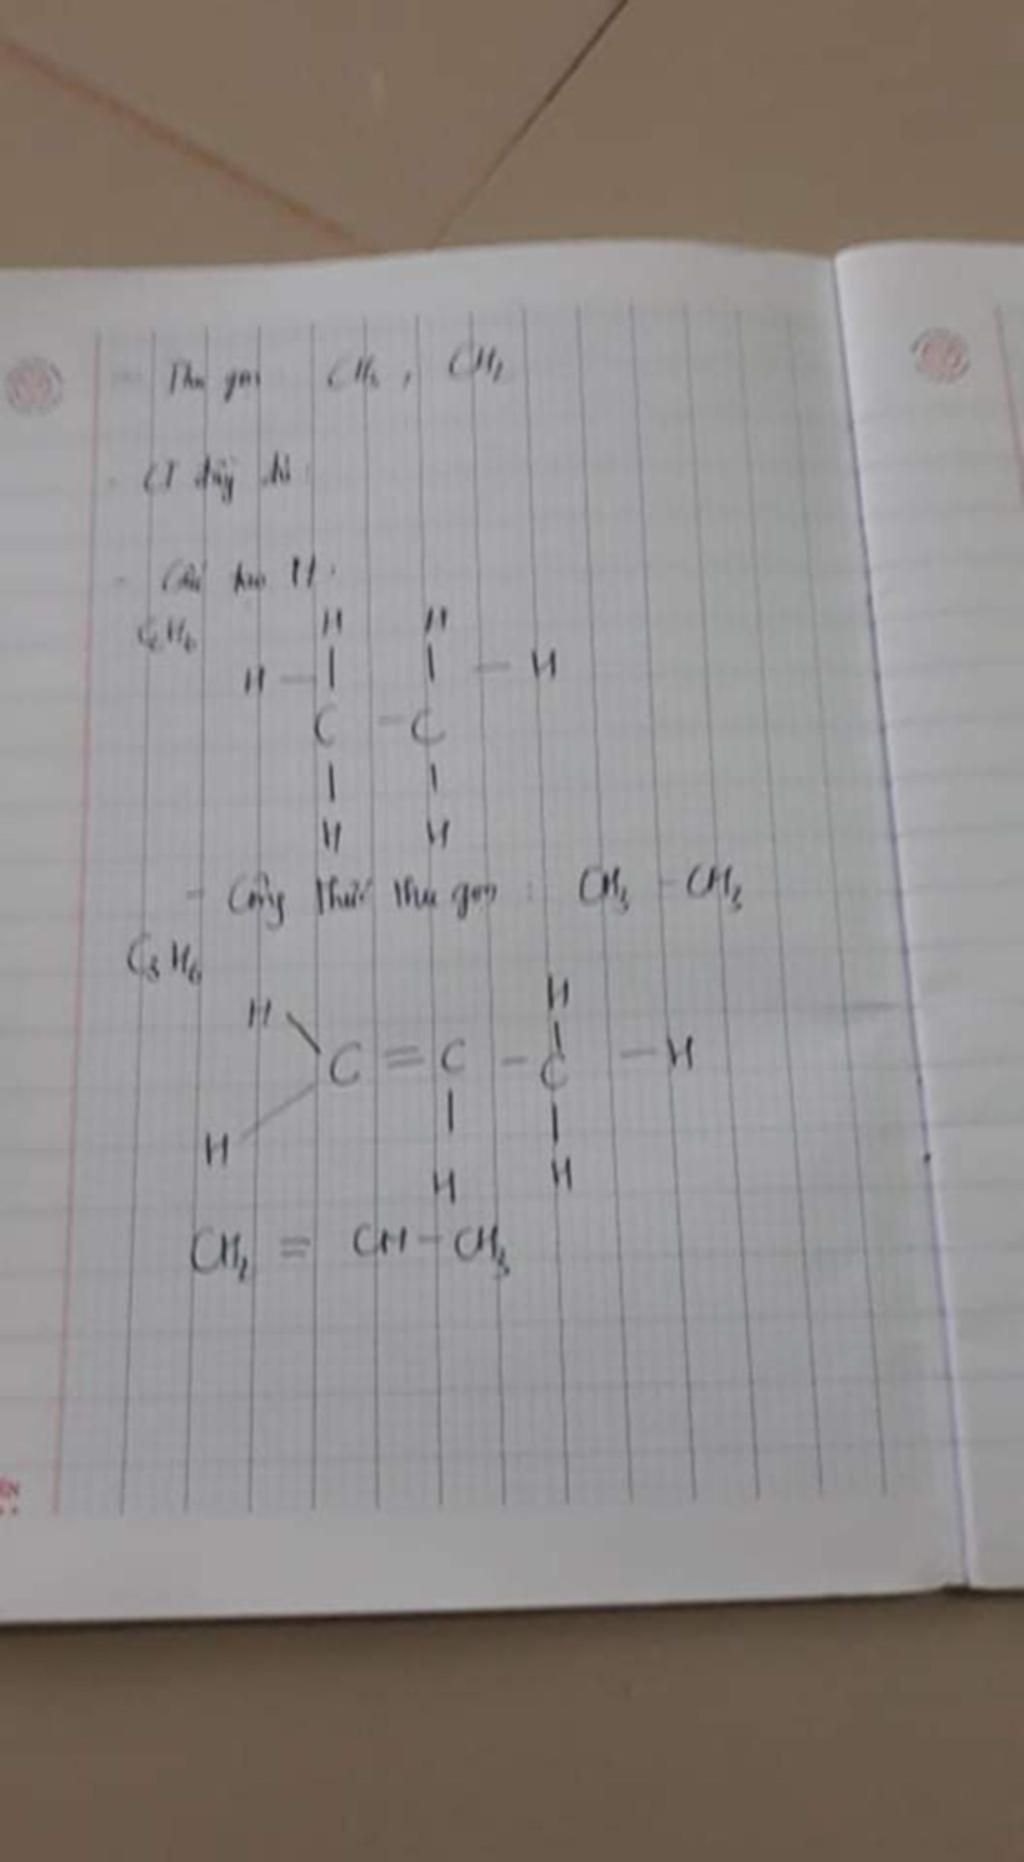 - Thu gọn CH₃, CH₂
- CT đầy đủ:
- Cấu tạo
C₂H₆
H H
H — | | — H
C — C
| |
H H
- Công thức thu gọn: CH₃ - CH₃
C₃H₆
H
H
C = C - C — H
| |
H
H H
CH₂ = CH - CH₃